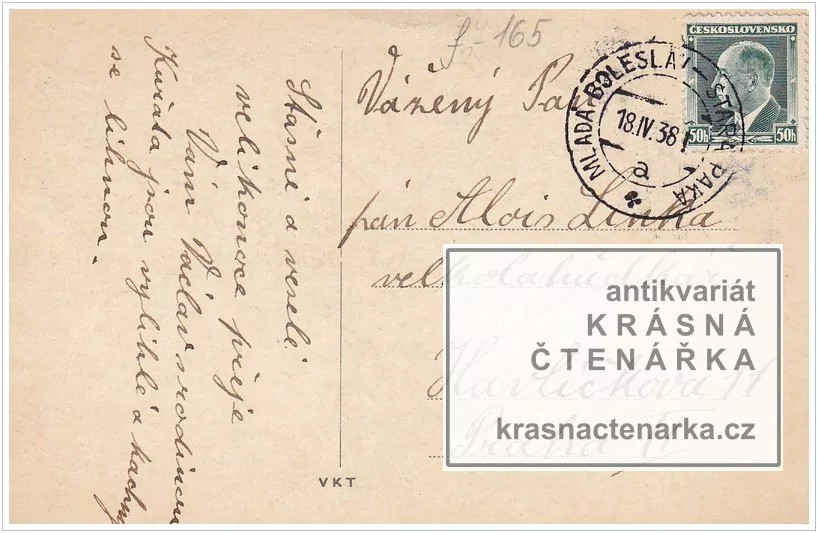 f 165
Vážený Pan
pán Alois Linka
velkolahůdkář
Havlíčkova 11
Praha II
Štasné a veselé
velikonoce přeje
Vám Václav s rodinou
Kuřata jsou vylíhlé a kachny
se líhnou.
VKT
ČESKOSLOVENSKO
50h 50h
MLADÁ BOLESLAV - STARÁ PAKA
18.IV.38
a
antikvariát
KRÁSNÁ
ČTENÁŘKA
krasnactenarka.cz